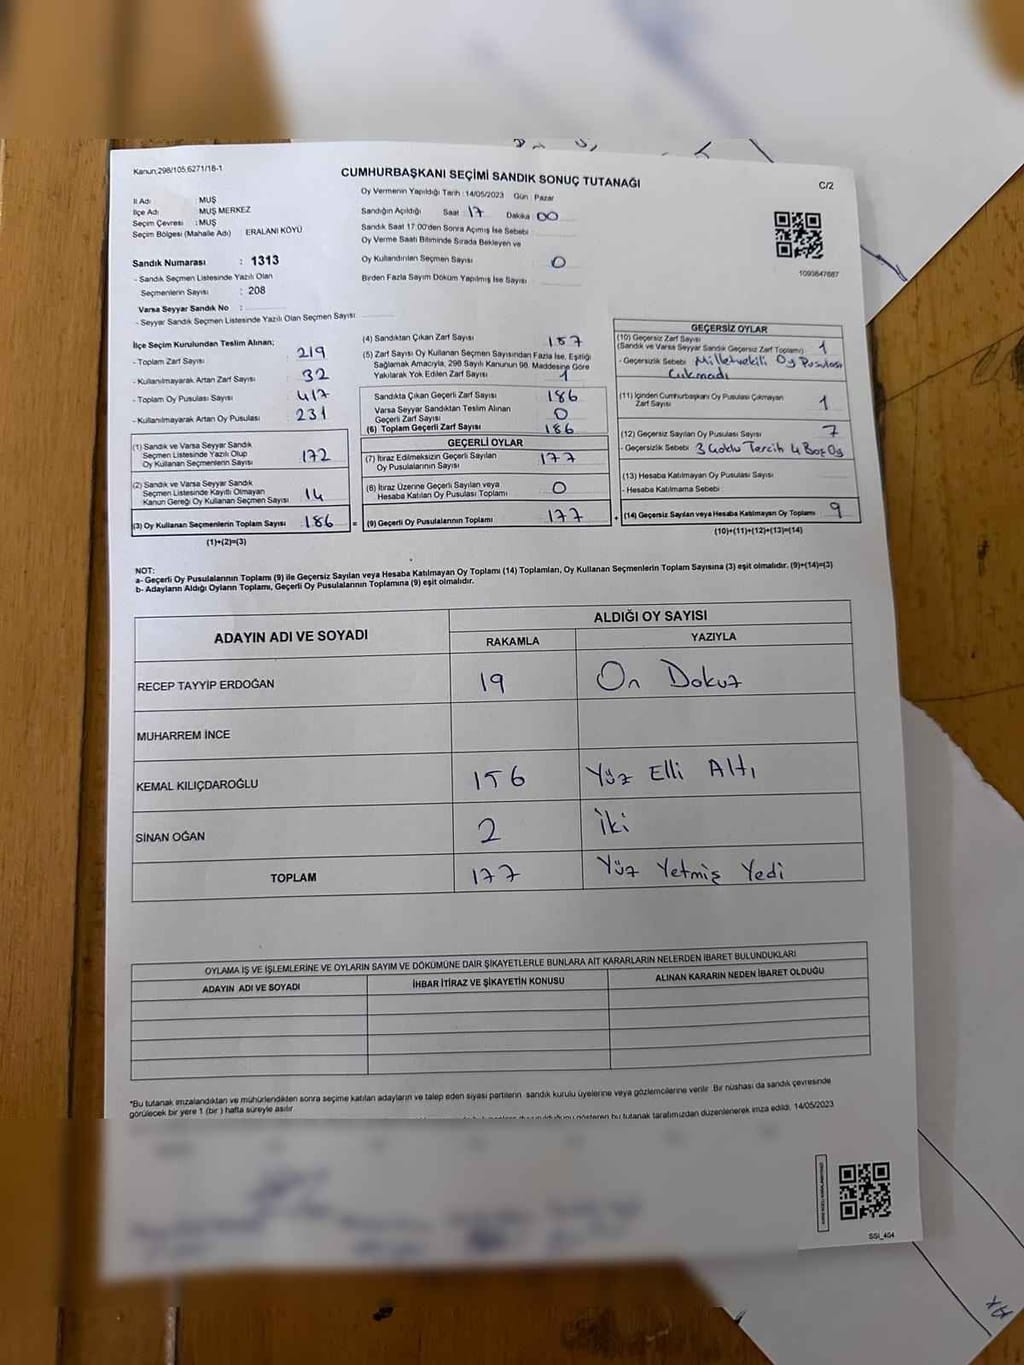 Kanun;298/105;6271/18-1
CUMHURBAŞKANI SEÇİMİ SANDIK SONUÇ TUTANAĞI
C/2
Oy Vermenin Yapıldığı Tarih :14/05/2023 Gün : Pazar
İl Adı : MUŞ
İlçe Adı : MUŞ MERKEZ
Seçim Çevresi : MUŞ
Seçim Bölgesi (Mahalle Adı) : ERALANI KÖYÜ
Sandığın Açıldığı Saat 17 Dakika 00
Sandık Saat 17:00'den Sonra Açılmış İse Sebebi
Oy Verme Saati Bitiminde Sırada Bekleyen ve
Oy Kullandırılan Seçmen Sayısı 0
Birden Fazla Sayım Döküm Yapılmış İse Sayısı
1093847687
Sandık Numarası : 1313
- Sandık Seçmen Listesinde Yazılı Olan
Seçmenlerin Sayısı : 208
Varsa Seyyar Sandık No :
- Seyyar Sandık Seçmen Listesinde Yazılı Olan Seçmen Sayısı:
İlçe Seçim Kurulundan Teslim Alınan;
- Toplam Zarf Sayısı 219
- Kullanılmayarak Artan Zarf Sayısı 32
- Toplam Oy Pusulası Sayısı 417
- Kullanılmayarak Artan Oy Pusulası 231
(1) Sandık ve Varsa Seyyar Sandık
Seçmen Listesinde Yazılı Olup
Oy Kullanan Seçmenlerin Sayısı 172
(2) Sandık ve Varsa Seyyar Sandık
Seçmen Listesinde Kayıtlı Olmayan
Kanun Gereği Oy Kullanan Seçmen Sayısı 14
(3) Oy Kullanan Seçmenlerin Toplam Sayısı 186 =
(1)+(2)=(3)
(4) Sandıktan Çıkan Zarf Sayısı 187
(5) Zarf Sayısı Oy Kullanan Seçmen Sayısından Fazla İse, Eşitliği
Sağlamak Amacıyla, 298 Sayılı Kanunun 98. Maddesine Göre
Yakılarak Yok Edilen Zarf Sayısı 1
Sandıkta Çıkan Geçerli Zarf Sayısı 186
Varsa Seyyar Sandıktan Teslim Alınan
Geçerli Zarf Sayısı 0
(6) Toplam Geçerli Zarf Sayısı 186
GEÇERLİ OYLAR
(7) İtiraz Edilmeksizin Geçerli Sayılan
Oy Pusulalarının Sayısı 177
(8) İtiraz Üzerine Geçerli Sayılan veya
Hesaba Katılan Oy Pusulası Toplamı 0
(9) Geçerli Oy Pusulalarının Toplamı 177 +
GEÇERSİZ OYLAR
(10) Geçersiz Zarf Sayısı
(Sandık ve Varsa Seyyar Sandık Geçersiz Zarf Toplamı) 1
- Geçersizlik Sebebi Milletvekili Oy Pusulası
Çıkmadı
(11) İçinden Cumhurbaşkanı Oy Pusulası Çıkmayan
Zarf Sayısı 1
(12) Geçersiz Sayılan Oy Pusulası Sayısı 7
- Geçersizlik Sebebi 3 Çoklu Tercih 4 Boş Oy
(13) Hesaba Katılmayan Oy Pusulası Sayısı
- Hesaba Katılmama Sebebi
(14) Geçersiz Sayılan veya Hesaba Katılmayan Oy Toplamı 9
(10)+(11)+(12)+(13)=(14)
NOT:
a- Geçerli Oy Pusulalarının Toplamı (9) ile Geçersiz Sayılan veya Hesaba Katılmayan Oy Toplamı (14) Toplamları, Oy Kullanan Seçmenlerin Toplam Sayısına (3) eşit olmalıdır. (9)+(14)=(3)
b- Adayların Aldığı Oyların Toplamı, Geçerli Oy Pusulalarının Toplamına (9) eşit olmalıdır.
ADAYIN ADI VE SOYADI
ALDIĞI OY SAYISI
RAKAMLA YAZIYLA
RECEP TAYYİP ERDOĞAN 19 On Dokuz
MUHARREM İNCE
KEMAL KILIÇDAROĞLU 156 Yüz Elli Altı
SİNAN OĞAN 2 İki
TOPLAM 177 Yüz Yetmiş Yedi
OYLAMA İŞ VE İŞLEMLERİNE VE OYLARIN SAYIM VE DÖKÜMÜNE DAİR ŞİKAYETLERLE BUNLARA AİT KARARLARIN NELERDEN İBARET BULUNDUKLARI
ADAYIN ADI VE SOYADI İHBAR İTİRAZ VE ŞİKAYETİN KONUSU ALINAN KARARIN NEDEN İBARET OLDUĞU
*Bu tutanak imzalandıktan ve mühürlendikten sonra seçime katılan adayların ve talep eden siyasi partilerin sandık kurulu üyelerine veya gözlemcilerine verilir. Bir nüshası da sandık çevresinde
görülecek bir yere 1 (bir) hafta süreyle asılır.
gösteren bu tutanak tarafımızdan düzenlenerek imza edildi. 14/05/2023
SSI_404